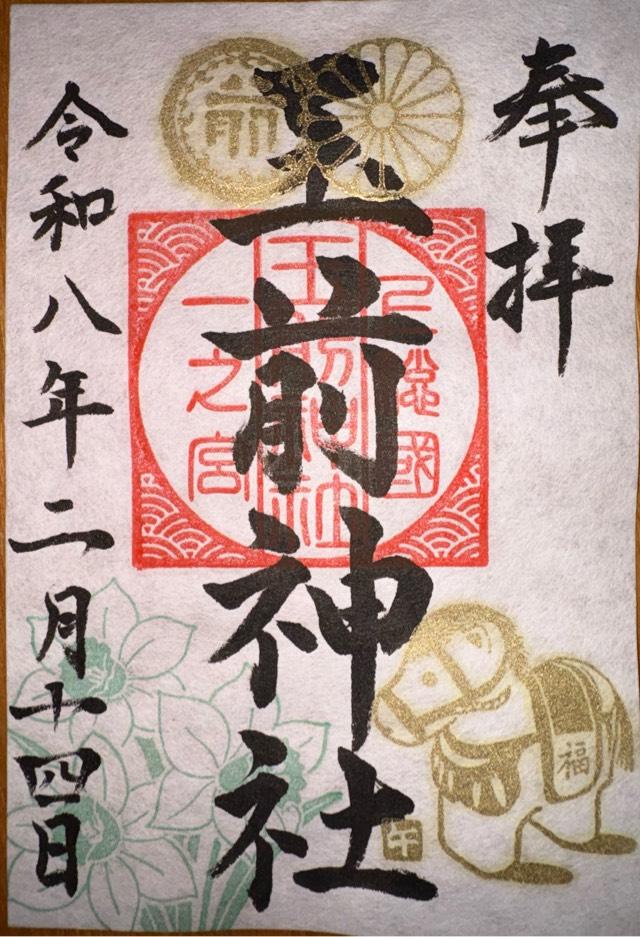 奉拝
玉前神社
上總國
玉前神社
一之宮
前
令和八年二月十四日
福
午